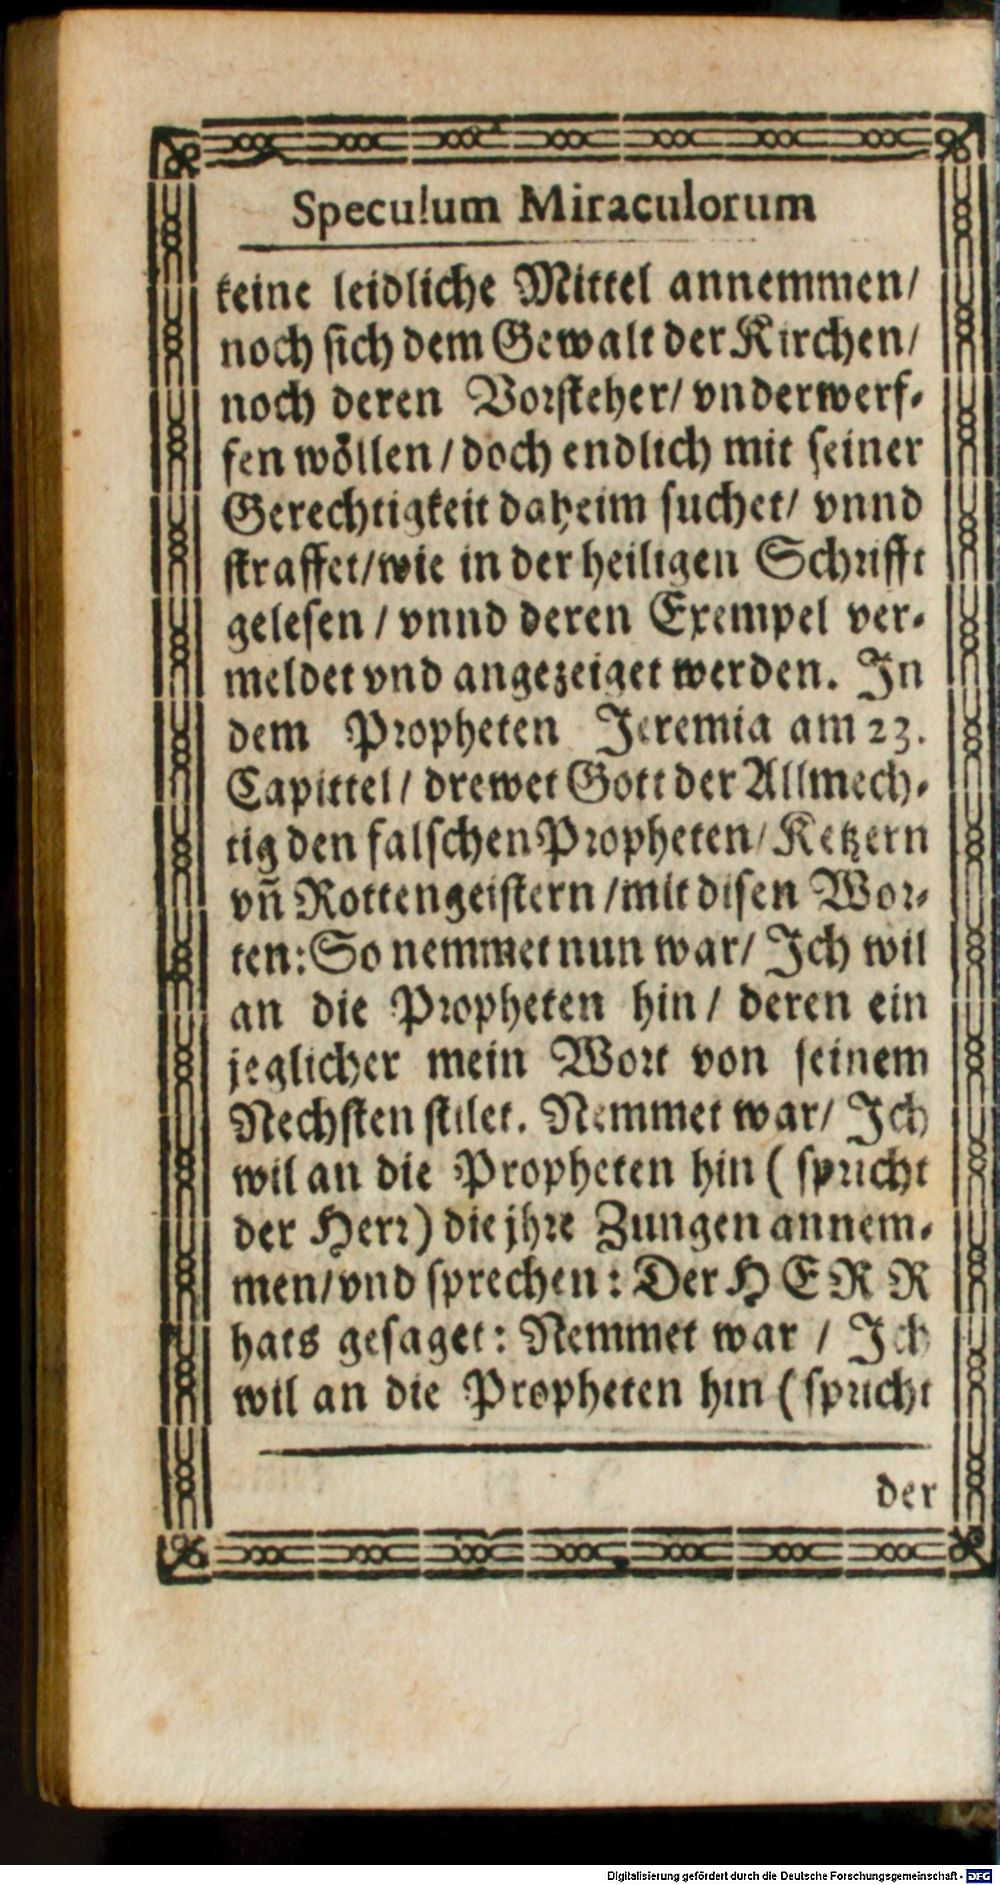 Speculum Miraculorum
keine leidliche Mittel annemmen/
noch sich dem Gewalt der Kirchen/
noch deren Vorsteher/ vnderwerf-
fen wöllen / doch endlich mit seiner
Gerechtigkeit daheim suchet/ vnnd
straffet/wie in der heiligen Schrifft
gelesen / vnnd deren Exempel ver-
meldet vnd angezeiget werden. In
dem Propheten Jeremia am 23.
Capittel/ drewet Gott der Allmech-
tig den falschen Propheten/ Ketzern
vñ Rottengeistern /mit disen Wor-
ten: So nemmet nun war/ Ich wil
an die Propheten hin / deren ein
jeglicher mein Wort von seinem
Nechsten stilet. Nemmet war/ Ich
wil an die Propheten hin ( spricht
der Herr) die jhre Zungen annem-
men/vnd sprechen: Der HERR
hats gesaget: Nemmet war / Ich
wil an die Propheten hin ( spricht
der
Digitalisierung gefördert durch die Deutsche Forschungsgemeinschaft - DFG